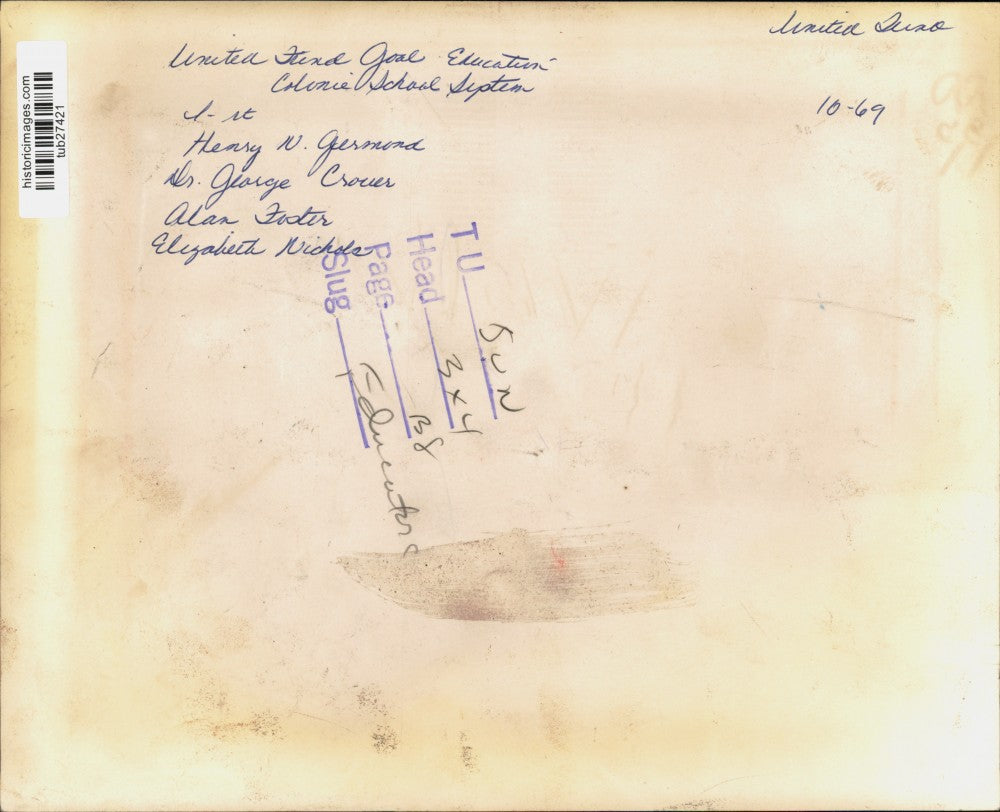 United Fund
United Fund Goal - Education
Colonie School System
10-69
l-rt
Henry N. Germond
Dr. George Crouer
Alan Foster
Elizabeth Nichols
TU SUN
Head 3x4
Page B8
Slug Educators
historicimages.com
tub27421